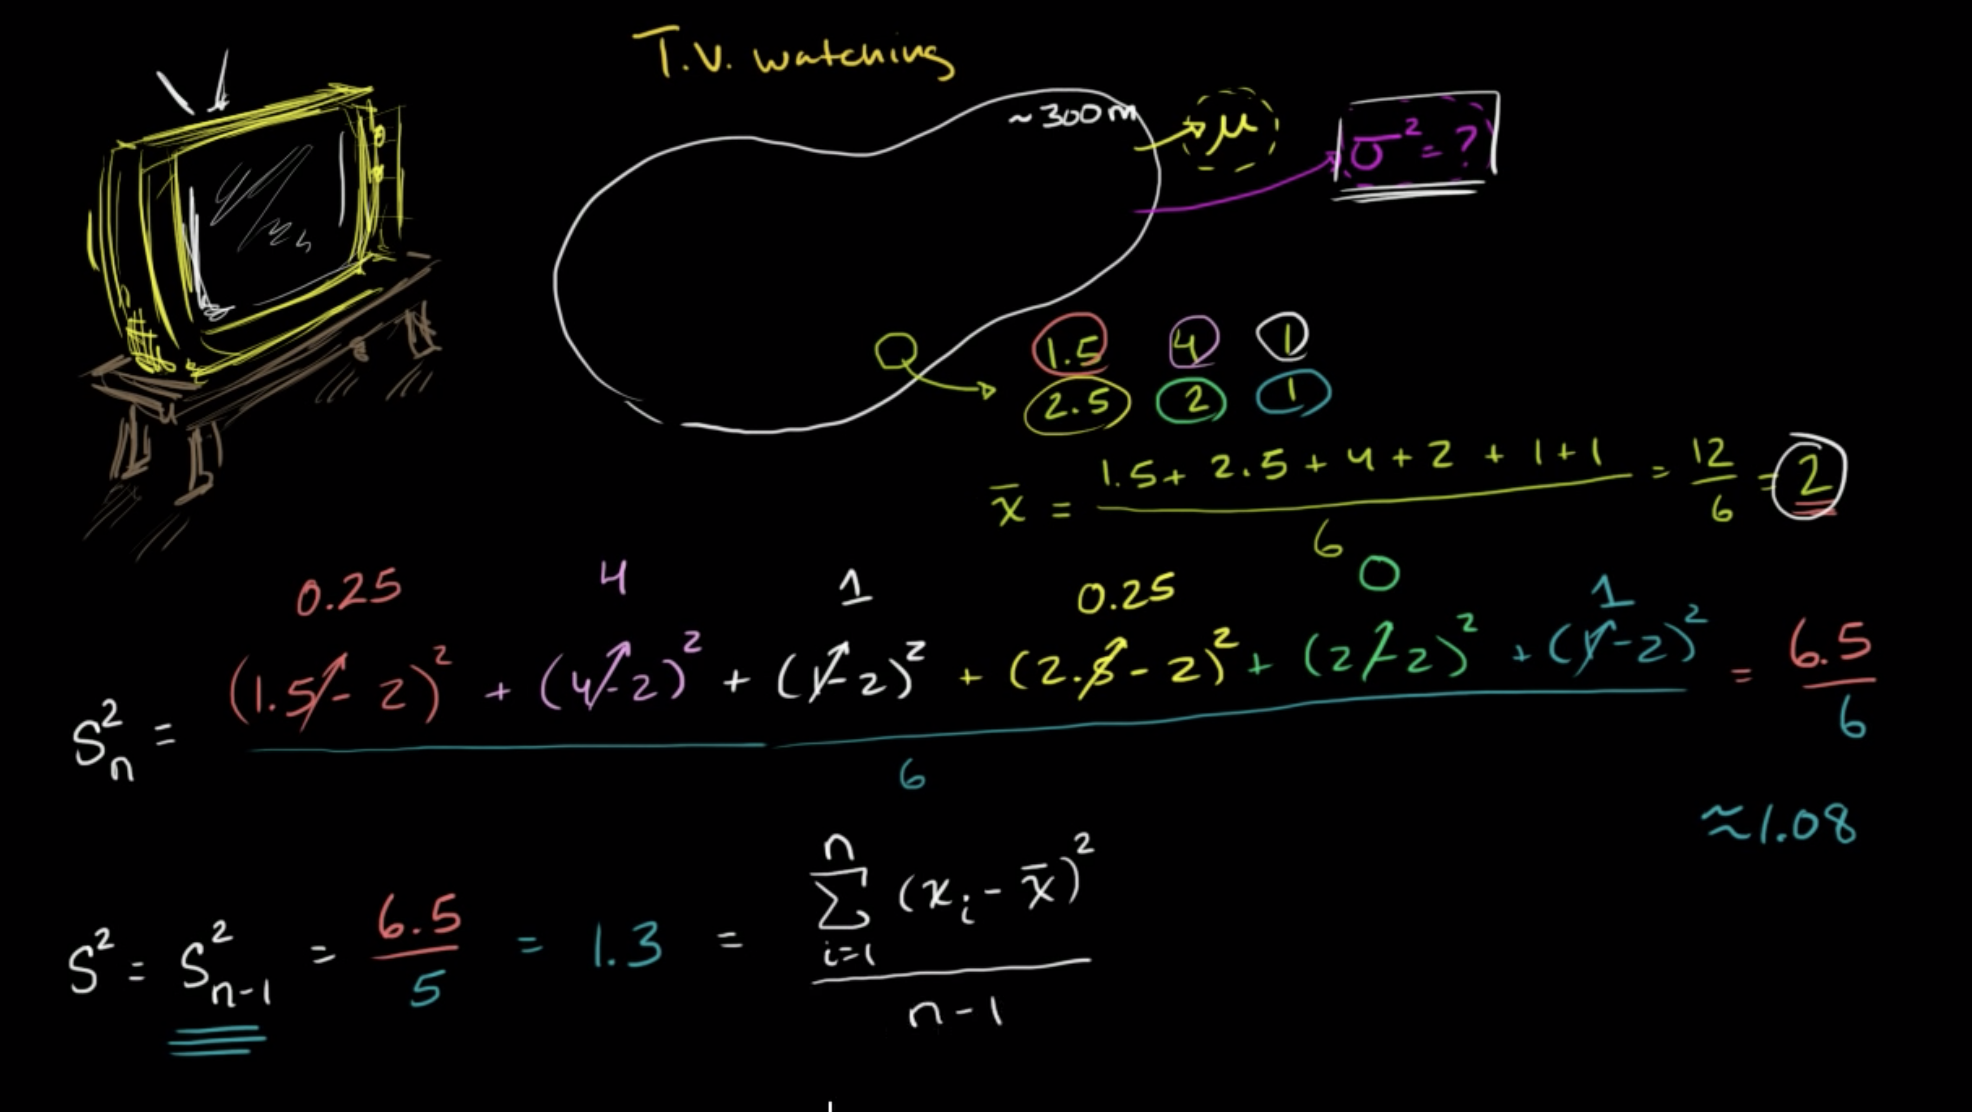 T.V. watching
~300m
μ
σ² = ?
1.5 4 1
2.5 2 1
x̄ = (1.5 + 2.5 + 4 + 2 + 1 + 1) / 6 = 12/6 = 2
0.25 4 1 0.25 0 1
Sₙ² = ((1.5 - 2)² + (4 - 2)² + (1 - 2)² + (2.5 - 2)² + (2 - 2)² + (1 - 2)²) / 6 = 6.5/6
≈ 1.08
S² = Sₙ₋₁² = 6.5/5 = 1.3 = ∑ᵢ₌₁ⁿ (xᵢ - x̄)² / (n - 1)